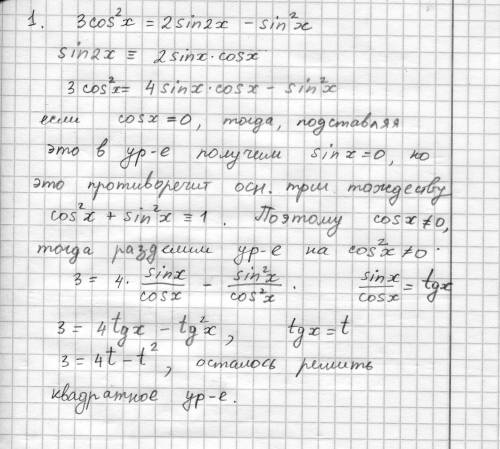 1. 3cos²x = 2sin2x - sin²x
sin2x ≡ 2sinx·cosx
3cos²x = 4sinx·cosx - sin²x
если cosx = 0, тогда, подставляя
это в ур-е получим sinx = 0, но
это противоречит осн. триг тождеству
cos²x + sin²x ≡ 1. Поэтому cosx ≠ 0,
тогда разделим ур-е на cos²x ≠ 0.
3 = 4·sinx/cosx - sin²x/cos²x. sinx/cosx = tgx
3 = 4tgx - tg²x, tgx = t
3 = 4t - t², осталось решить
квадратное ур-е.